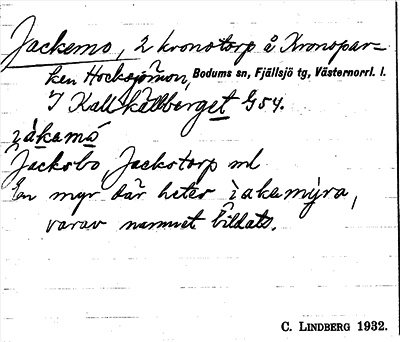 Jackemo, 2 kronotorp å Kronopar=
ken Hocksjömon, Bodums sn, Fjällsjö tg, Västernorrl. l.
I Kallkällberget G54.
jàkamó
Jacksbo, Jackstorp ml
En myr där heter ìakamýra,
varav namnet bildats.
C. LINDBERG 1932.